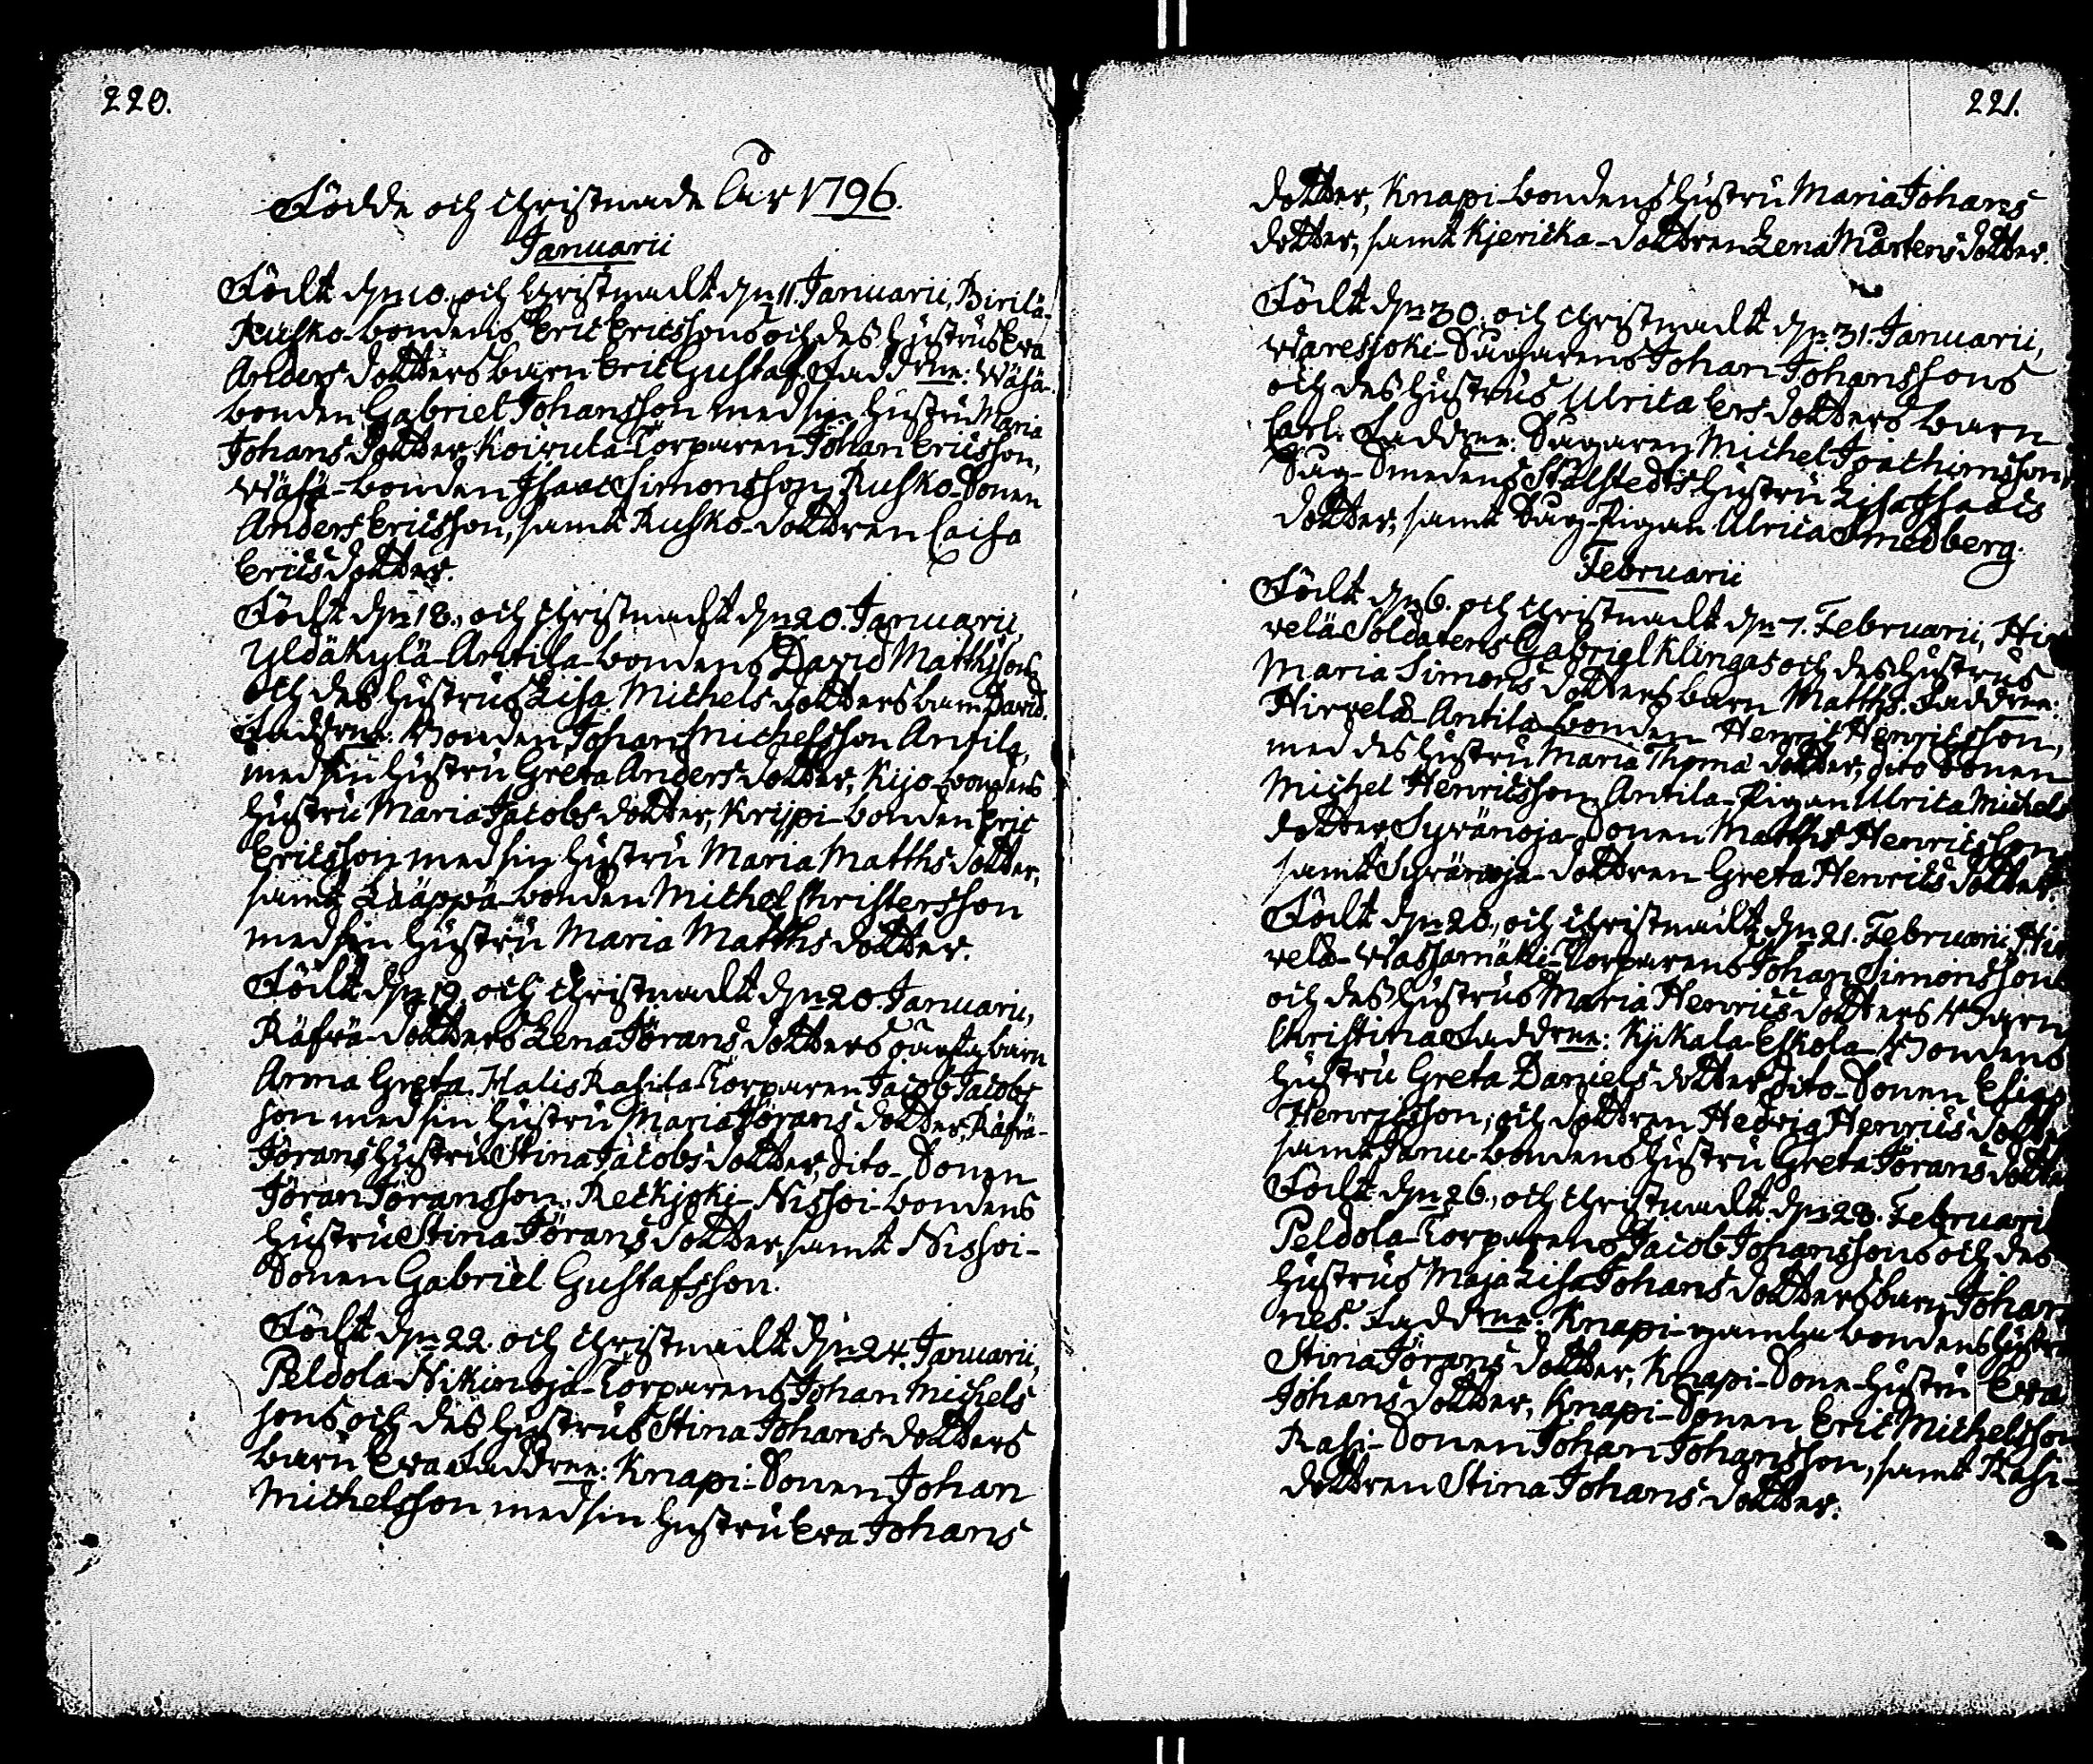 220.
Födde och Christnade Åar 1796.
Januarii
Födt d_n 10. och Christnadt d_n 11. Januarii, Birilä-
Rusko-bondens Eric Ericssons och des hustrus Eva
Anders dotters barn Eric Gustaf. Faddrne: Wähä-
bonden Gabriel Johansson med sin hustru Maria
Johans dotter, Koirula-Torparen Johan Ericsson,
Wähä-bonden Isaac Simonsson, Rusko-Sonen
Anders Ericsson, samt Rusko-dottren Caisa
Erics dotter.
Födt d_n 18., och Christnadt d_n 20. Januarii,
Yldäkylä-Antila-bondens David Matthssons
och des hustrus Lisa Michels dotters barn David.
Faddrne: Bonden Johan Michelsson Antila,
med sin hustru Greta Anders dotter, Kijo-bondens
hustru Maria Jacobs dotter, Krijpi-bonden Eric
Ericsson med sin hustru Maria Matths dotter,
samt Lääppä-bonden Michel Christersson
med sin hustru Maria Matths dotter.
Födt d_n 19. och Christnadt d_n 20. Januarii,
Räfvä-dotters Lena Jörans dotters oäkta barn
Anna Greta. Halis Rasila-Torparen Jacob Jacobs
son med sin hustru Maria Jörans dotter, Räfvä-
Jörans hustru Stina Jacobs dotter, dito-Sonen
Jöran Jöransson, Reckijoki-Nissoi-bondens
hustru Stina Jörans dotter, samt Nissoi-
Sonen Gabriel Gustafsson.
Födt d_n 22. och Christnadt d_n 24. Januarii,
Peldola-Nikinoja-Torparens Johan Michels
sons och des hustrus Stina Johans dotters
barn Eva. Faddrne: Knapi-Sonen Johan
Michelsson med sin hustru Eva Johans
221.
dotter, Knapi-bondens hustru Maria Johans
dotter, samt Kjericka-dottren Lena Mårtens dotter.
Födt d_n 30. och Christnadt d_n 31. Januarii,
Waresjoki-Sagarens Johan Johanssons
och des hustrus Ulrica Ers dotters barn
Carl. Faddrne: Sagaren Michel Joachimsson,
Sag-Smedens Stålstedts hustru Lisa Isaacs
dotter, samt Sag-Pigan Ulrica Smedberg.
Februarii
Födt d_n 6. och Christnadt d_n 7. Februarii, Hir
velä Soldatens Gabriel Klingas och des hustrus
Maria Simons dotters barn Matths. Faddrne:
Hirvelä-Antila-bonden Henric Henricsson,
med des hustru Maria Thoma dotter, dito Sonen
Michel Henricsson, Antila-Pigan Ulrica Michels
dotter, Syvänoja-Sonen Matths Henricsson,
samt Syvänoja-dottren Greta Henrics dotter.
Födt d_n 20., och Christnadt d_n 21. Februarii, Hir
velä-Wassamäki-Torparens Johan Simonssons
och des hustrus Maria Henrics dotters Barn
Christina. Faddrne: Kykala-Eskola-Bondens
hustru Greta Daniels dotter, dito-Sonen Esias
Henricsson, och dottren Hedvig Henrics dotter
samt Janu-bondens hustru Greta Jörans dotter
Födt d_n 26., och Christnadt d_n 28. Februari
Peldola-Torparens Jacob Johanssons och des
hustrus Maja Lisa Johans dotters barn Johan
nes. Faddrne: Knapi-gamla bondens hustru
Stina Jörans dotter, Knapi-Sone-hustru Eva
Johans dotter, Knapi-Sonen Eric Michelsson
Rasi-Sonen Johan Johansson, samt Rasi-
dottren Stina Johans dotter.